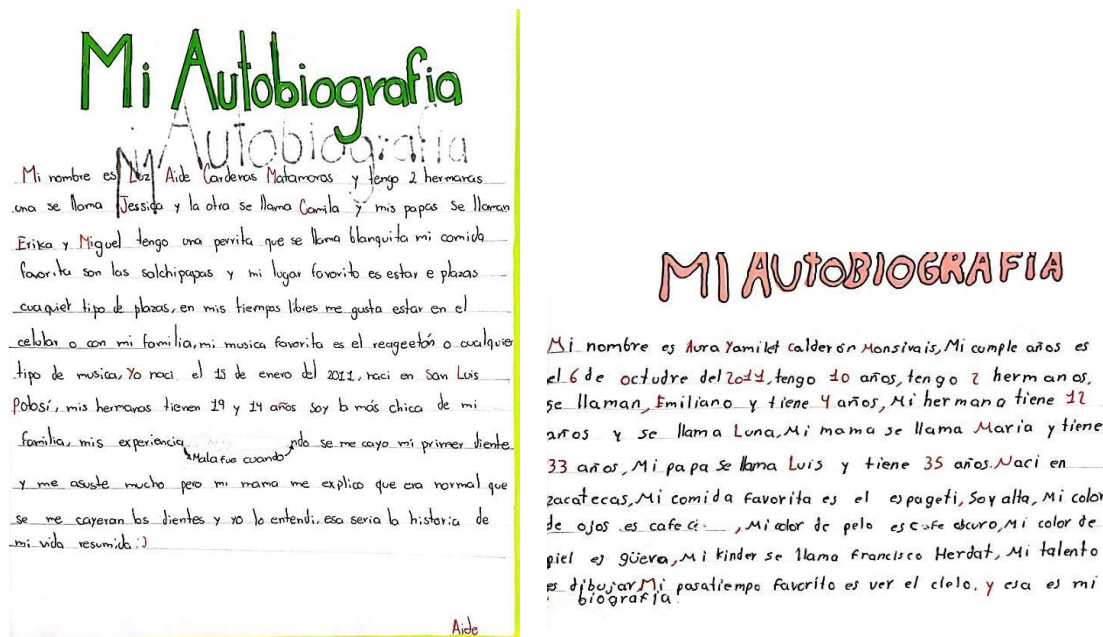 Mi Autobiografia
Mi Autobiografia
Mi nombre es Luz Aide Cardenas Matamoros y tengo 2 hermanas
una se llama Jessica y la otra se llama Camila y mis papas se llaman
Erika y Miguel tengo una perrita que se llama blanquita mi comida
favorita son las salchipapas y mi lugar favorito es estar e plazas
cuaquiet tipo de plazas, en mis tiempos libres me gusta estar en el
celular o con mi familia, mi musica favorita es el reageetón o cualquier
tipo de musica, Yo naci el 15 de enero del 2011, naci en San Luis
Potosí, mis hermanas tienen 19 y 14 años soy la más chica de mi
familia, mis experiencia ndo se me cayo mi primer diente
Mala fue cuando
y me asuste mucho pero mi mama me explico que era normal que
se me cayeran los dientes y yo lo entendi, esa seria la historia de
mi vida resumida :)
Aide
MI AUtOBIOGRAFIA
Mi nombre es Aura Yamilet calderón Monsivais, Mi cumple años es
el 6 de octudre del 2011, tengo 10 años, tengo 2 hermanos,
se llaman, Emiliano y tiene 4 años, Mi hermana tiene 12
años y se llama Luna, Mi mama se llama Maria y tiene
33 años, Mi papa se llama Luis y tiene 35 años. Naci en
zacatecas, Mi comida favorita es el espageti, Soy alta, Mi color
de ojos es cafe , Mi color de pelo es cafe obcuro, Mi color de
piel es güera, Mi kinder se llama francisco Herdat, Mi talento
es dibujar Mi pasatiempo favorito es ver el cielo. y esa es mi
biografia.